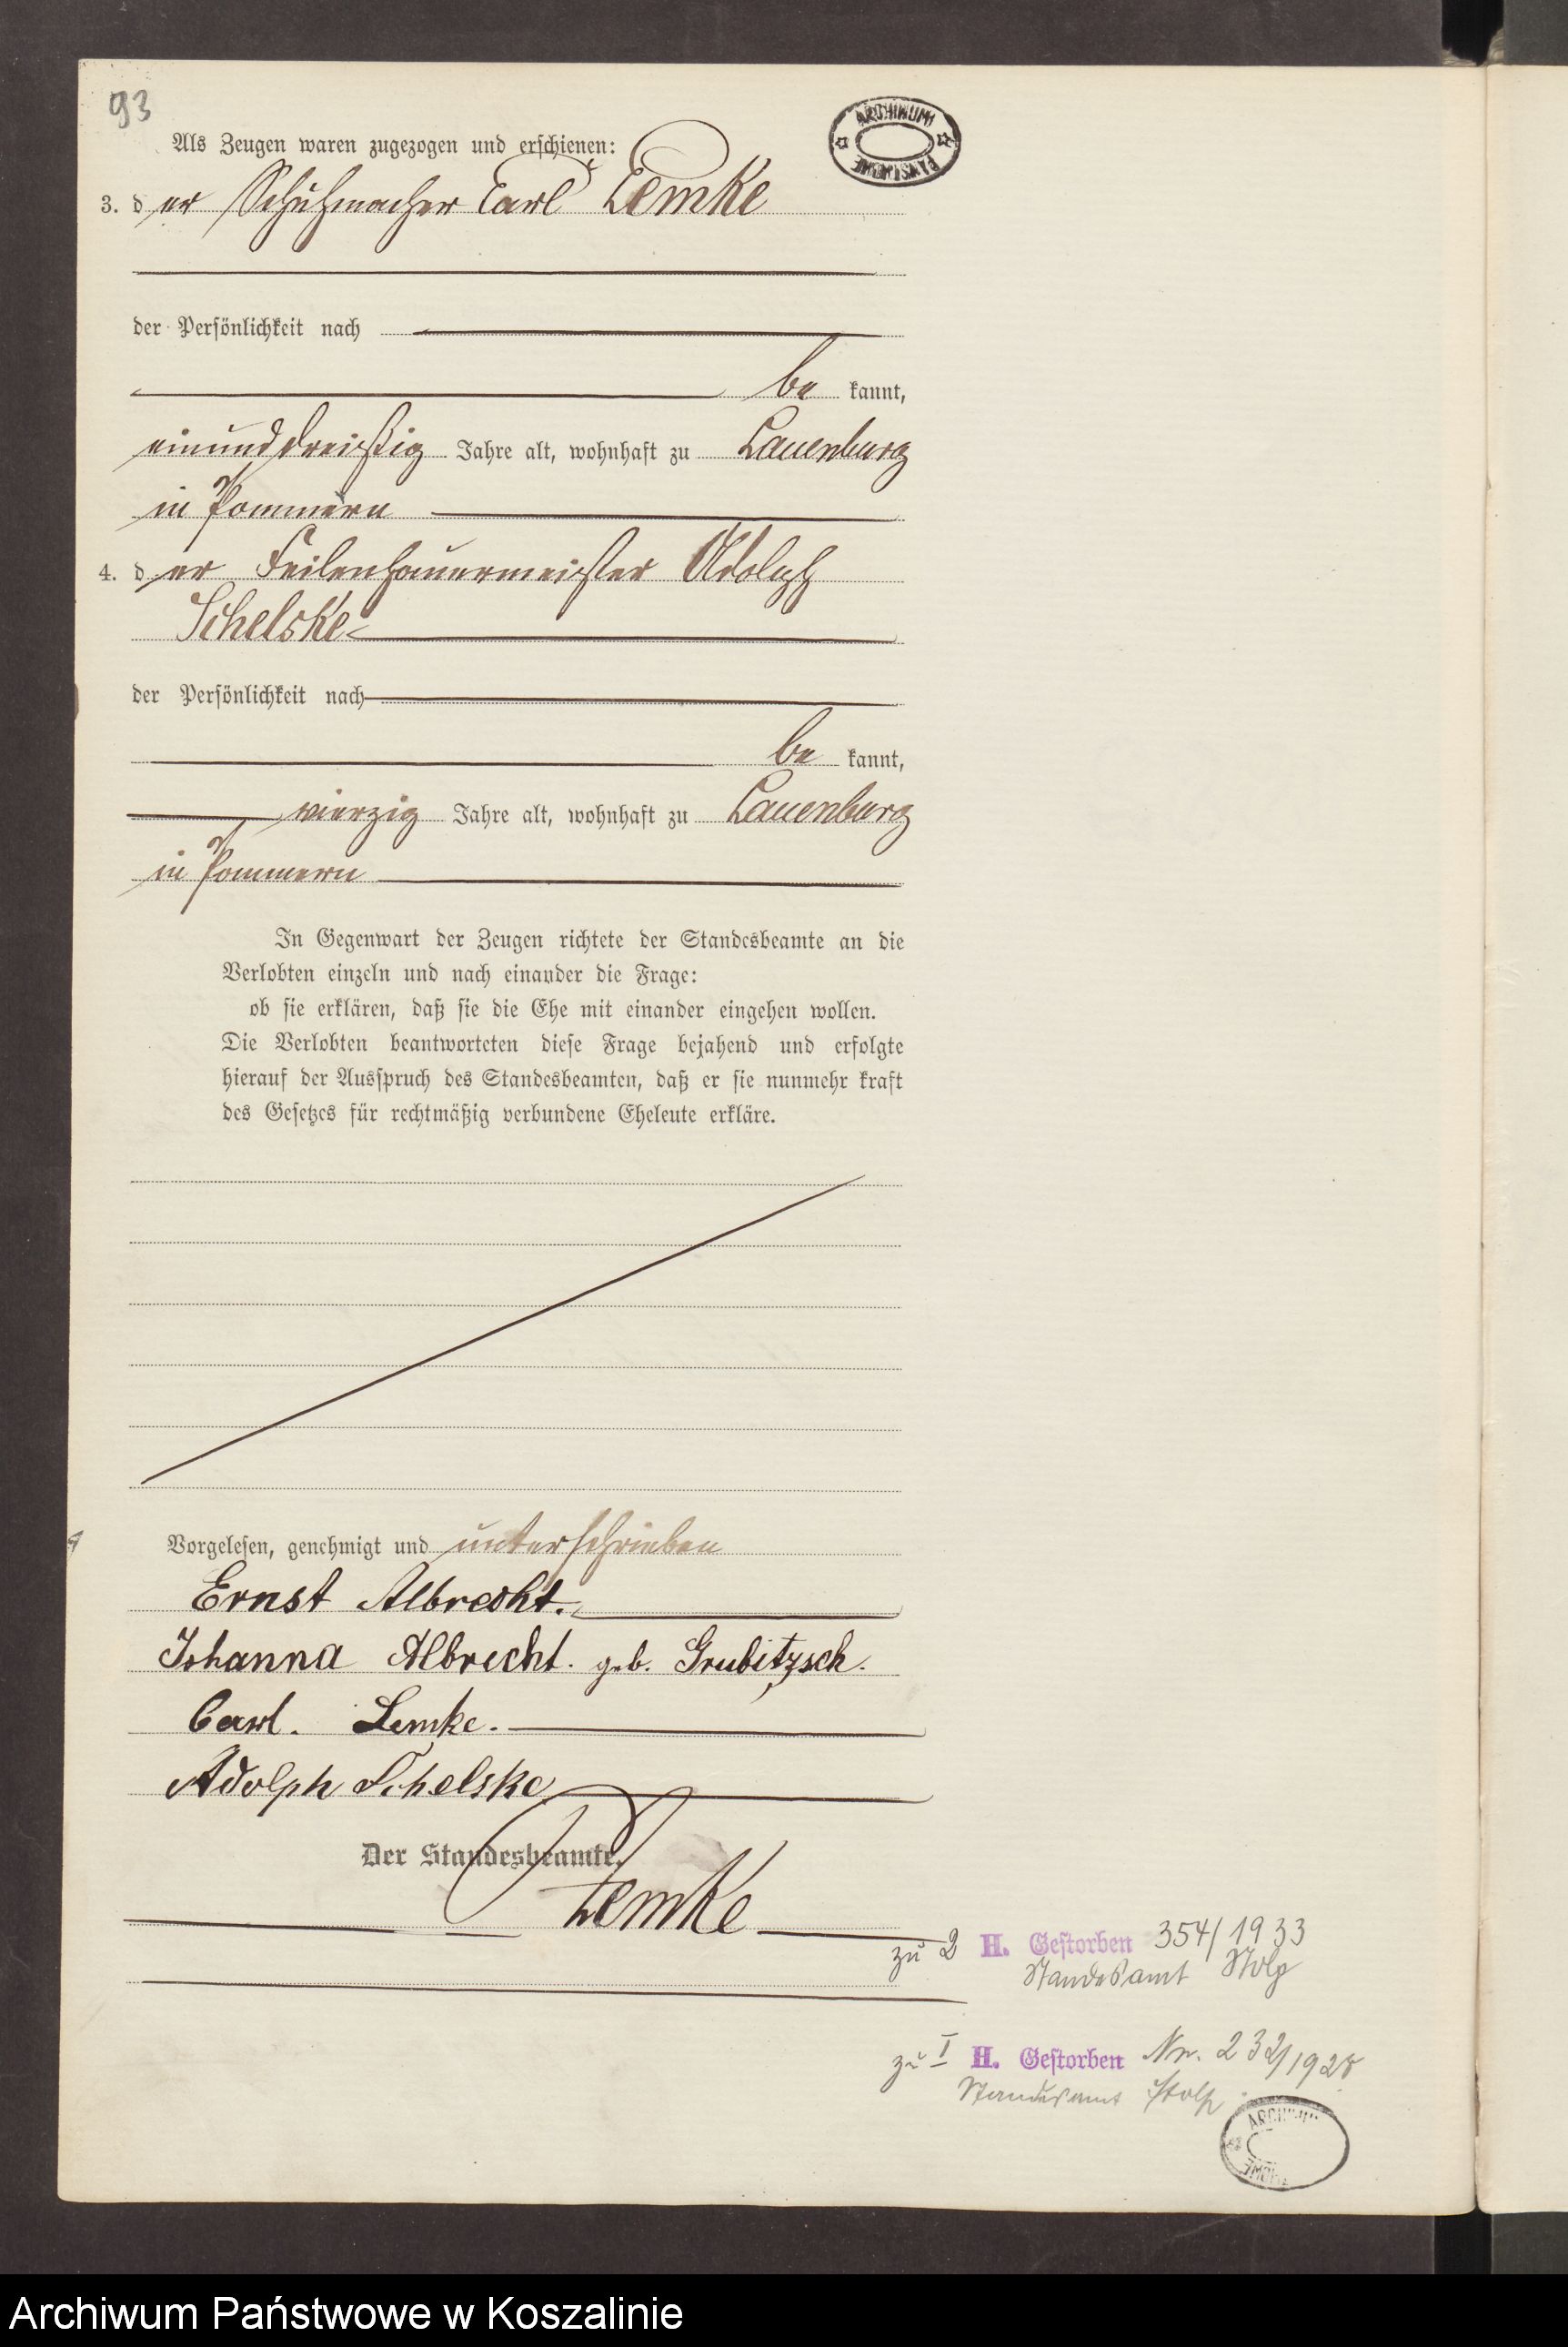 93
ARCHIWUM
PAŃSTWOWE
Als Zeugen waren zugezogen und erschienen:
3. der Schuhmacher Carl Lemke
der Persönlichkeit nach
be kannt,
einunddreißig Jahre alt, wohnhaft zu Lauenburg
in Pommern
4. der Feilenhauermeister Adolph
Schelske
der Persönlichkeit nach
be kannt,
vierzig Jahre alt, wohnhaft zu Lauenburg
in Pommern
In Gegenwart der Zeugen richtete der Standesbeamte an die
Verlobten einzeln und nach einander die Frage:
ob sie erklären, daß sie die Ehe mit einander eingehen wollen.
Die Verlobten beantworteten diese Frage bejahend und erfolgte
hierauf der Ausspruch des Standesbeamten, daß er sie nunmehr kraft
des Gesetzes für rechtmäßig verbundene Eheleute erkläre.
Vorgelesen, genehmigt und unterschrieben
Ernst Albrecht.
Johanna Albrecht. geb. Grubitzsch.
Carl. Lemke.
Adolph Schelske
Der Standesbeamte.
Lemke
zu 2 H. Gestorben 354/1933
Standesamt Stolp
zu I H. Gestorben Nr. 232/1928
Standesamt Stolp
ARCHIWUM
Archiwum Państwowe w Koszalinie